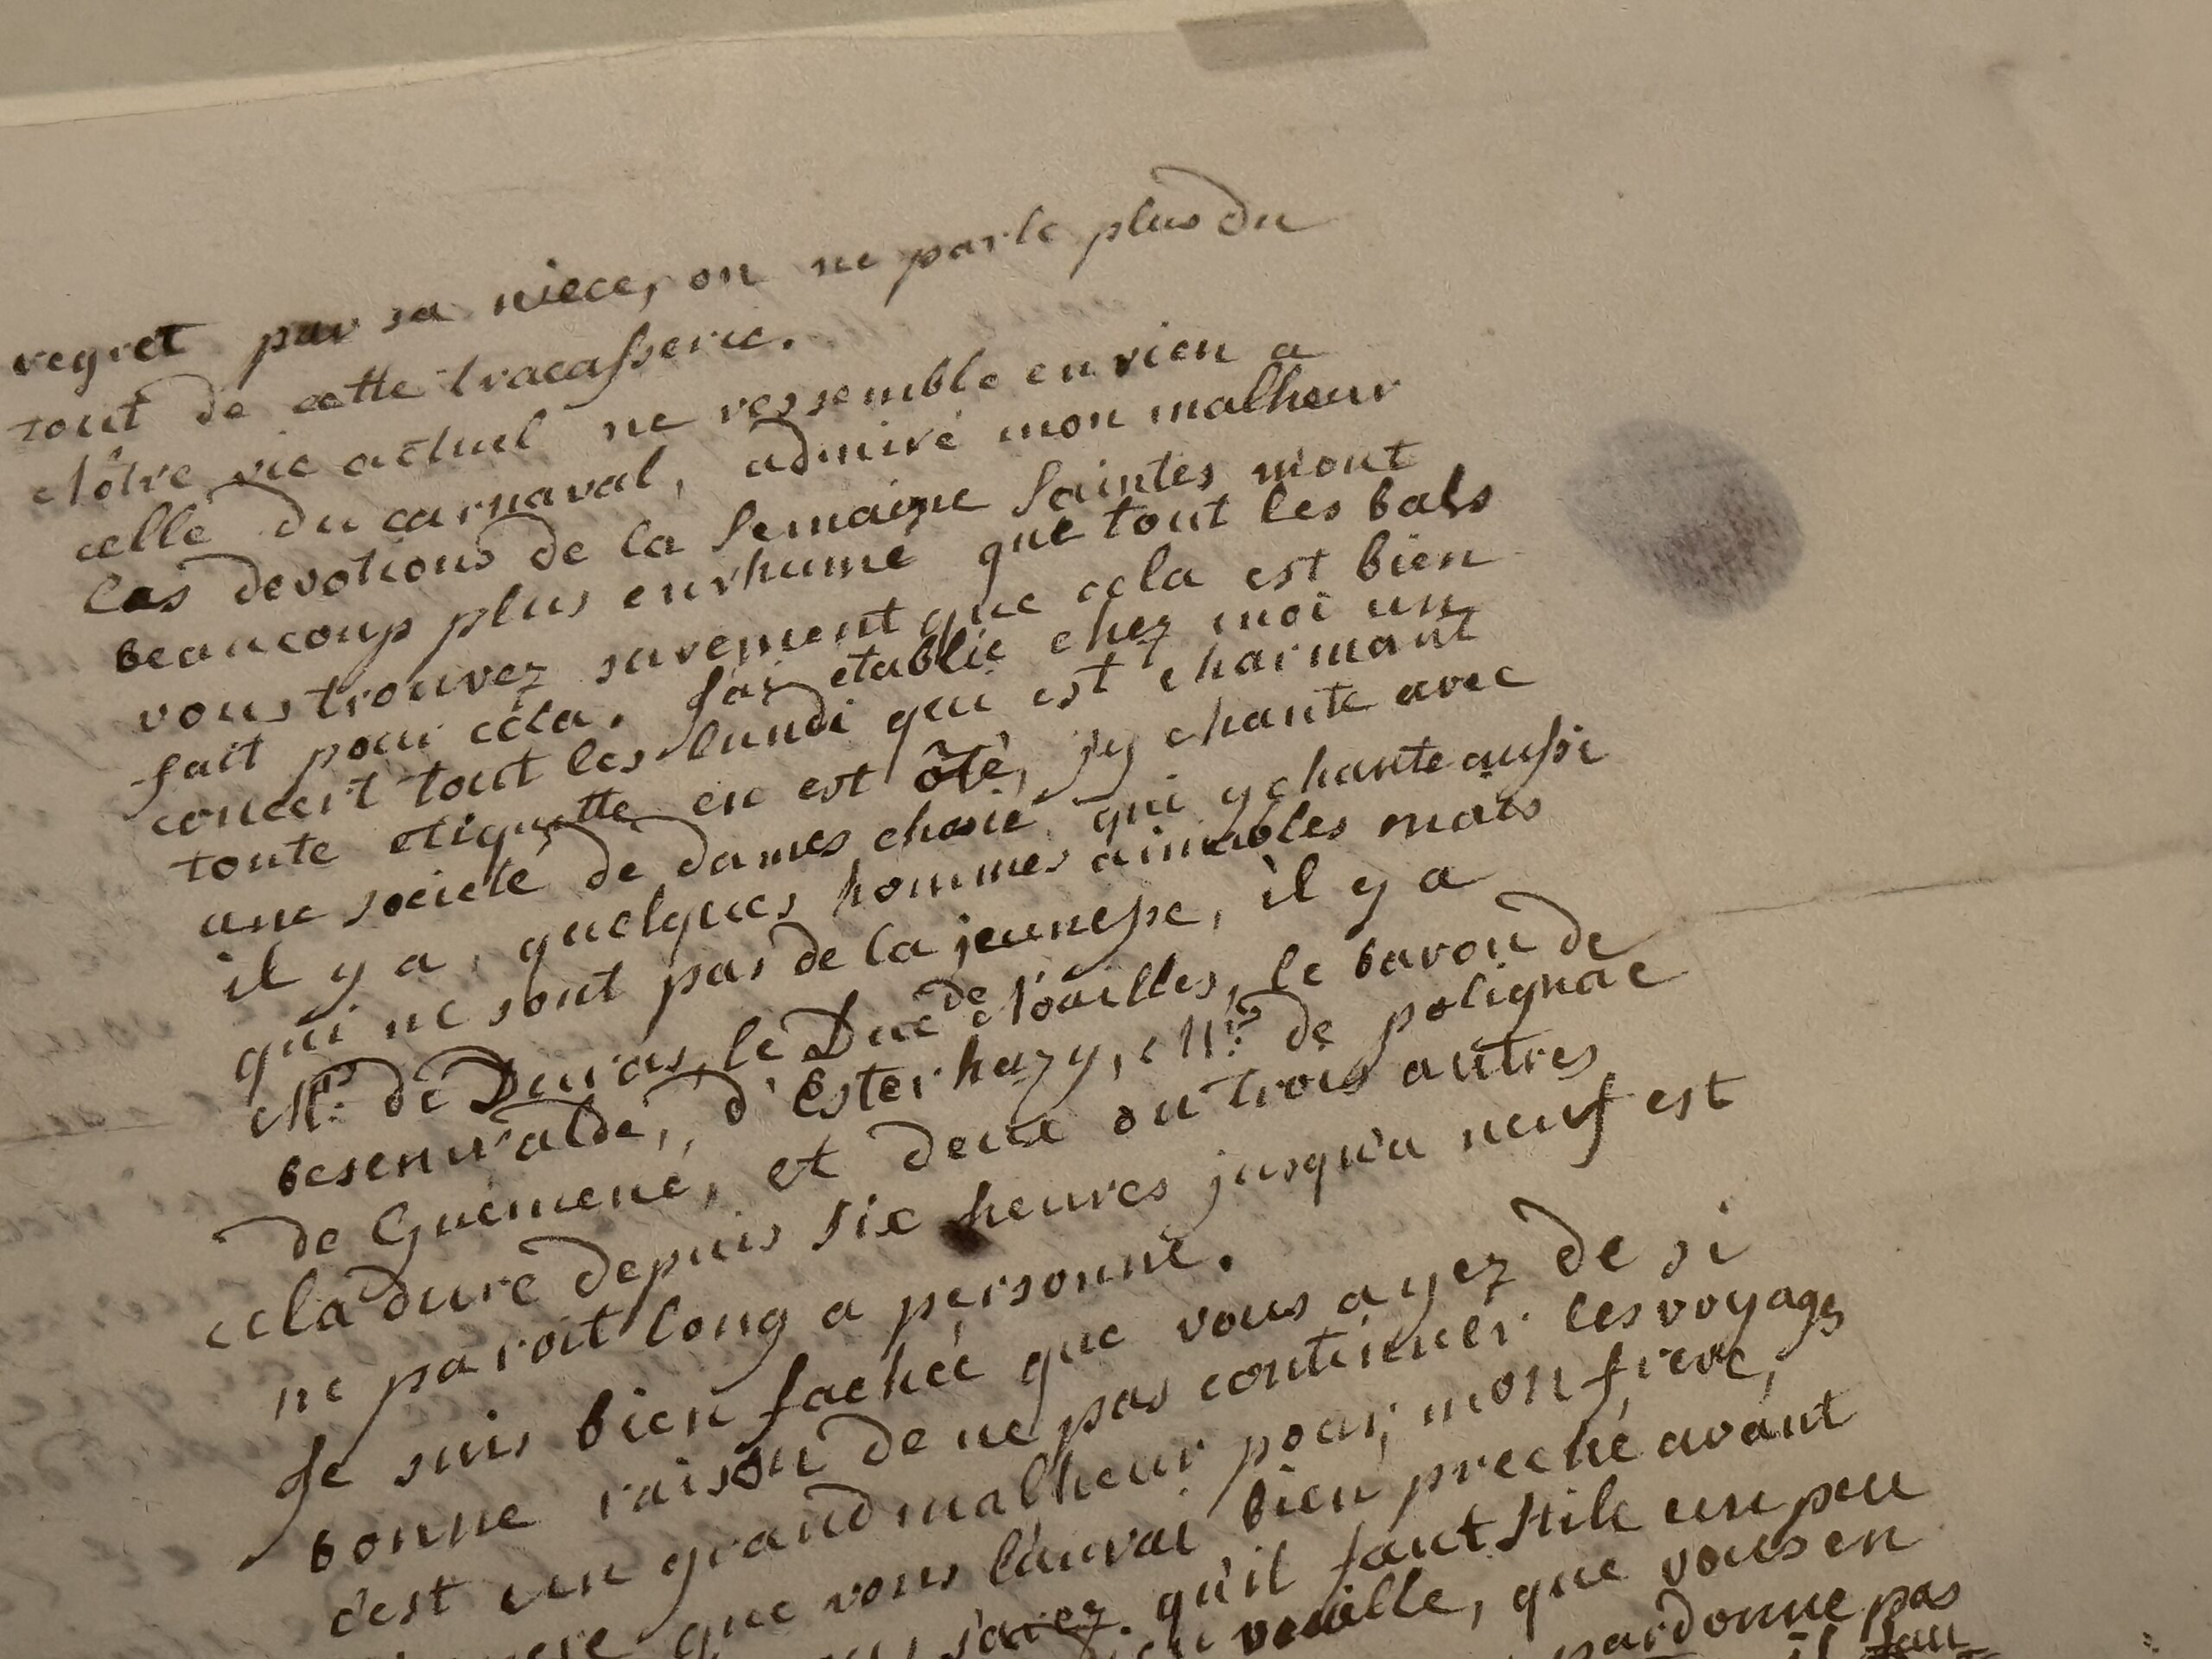 regret par sa niece, on ne parle plus du
tout de cette tracasserie.
Nôtre vie actuel ne ressemble en rien a
celle du carnaval, admiré mon malheur
les devotions de la Semaine Saintes m'ont
beaucoup plus enrhumé que tout les bals
vous trouvez surement que cela est bien
fait pour cela. J'ai etablie chez moi un
concert tout les lundi qui est charmant
toute etiquette en est ôté, j'y chante avec
une societé de dames choisie qui y chante aussi
il y a, quelques hommes aimables mais
qui ne sont pas de la jeunesse, il y a
Mr. de Duras, le Duc de Noailles, le baron de
besenvalde, d'Esterhazy, Mr. de polignac
de Guémené, et deux ou trois autres
cela dure depuis six heures jusqu'a neuf est
ne paroit long a personne.
Je suis bien fachée que vous ayez de si
bonne raison de ne pas continuer les voyages
c'est un grand malheur pour, mon frere,
que vous l'aurai bien preché avant
savez. qu'il faut Stile un peu
veuille, que vous en
pardonne pas
il